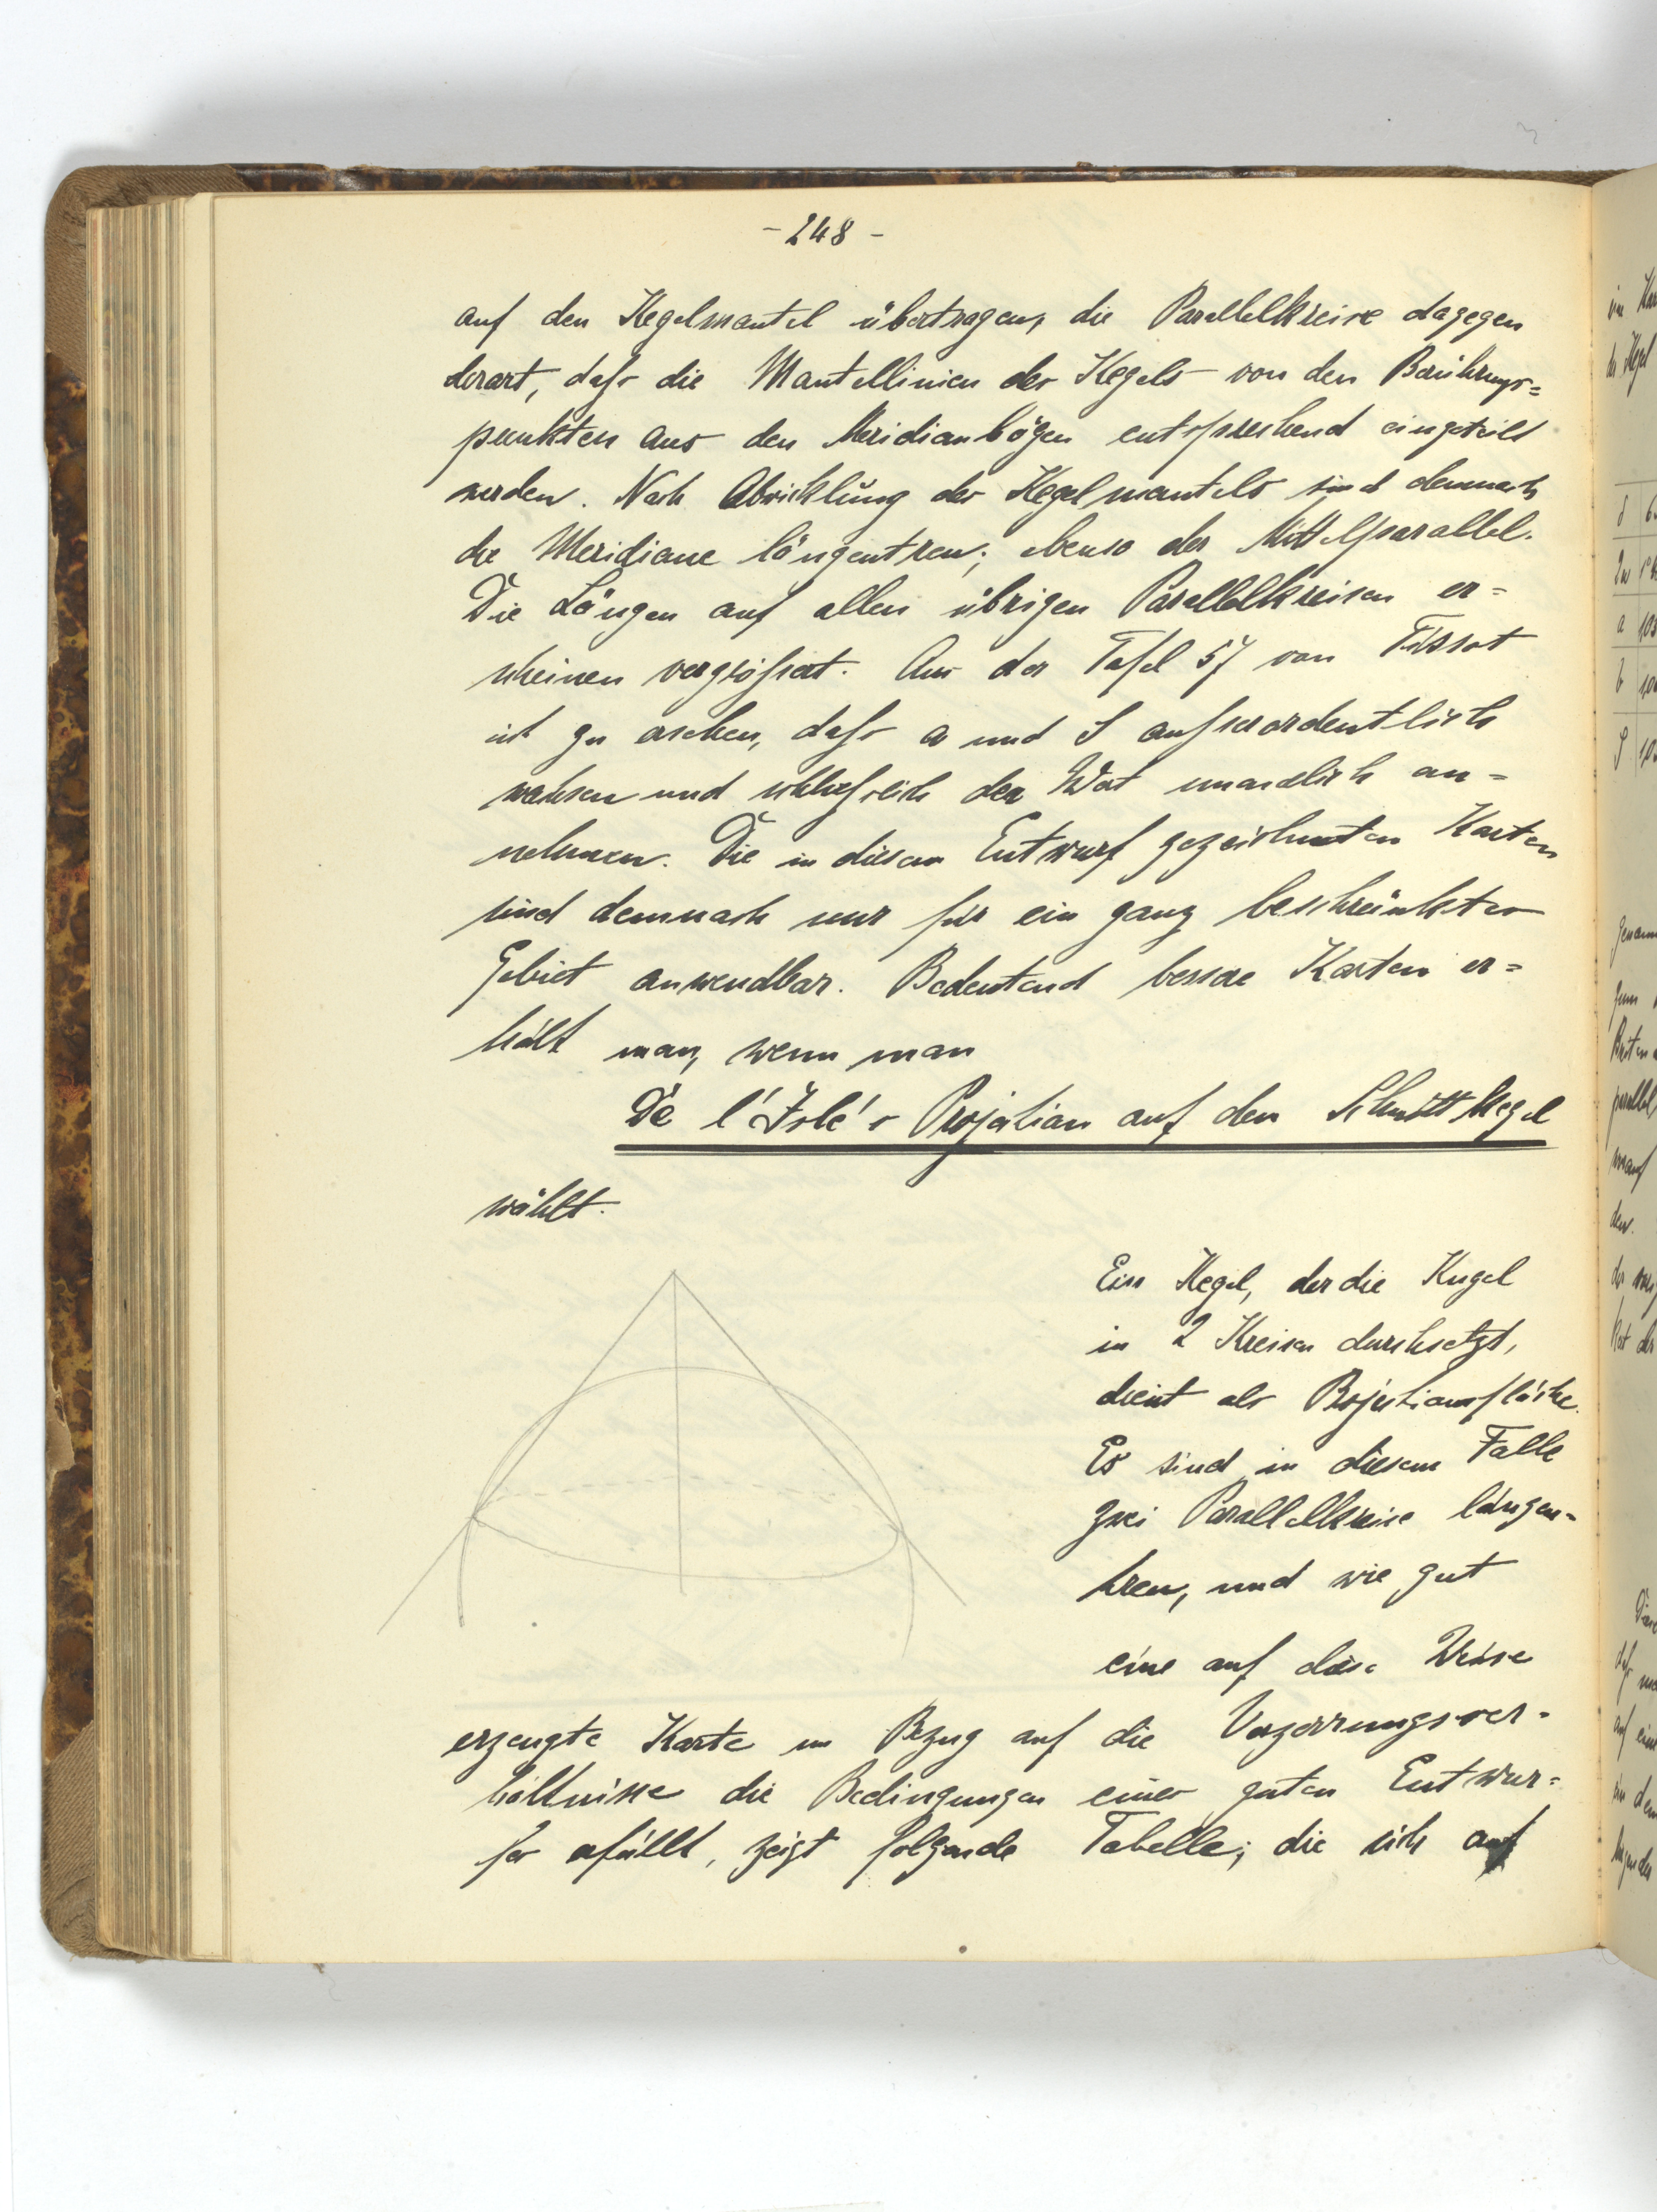 - 248 -
auf den Kegelmantel übertragen, die Parallelkreise dagegen
derart, daß die Mantellinien des Kegels von den Berührungs=
punkten aus den Meridianbögen entsprechend eingeteilt
werden. Nach Abwicklung des Kegelmantels sind demnach
die Meridiane längentreu; ebenso der Mittelparallel.
Die Längen auf allen übrigen Parallelkreisen er=
scheinen vergrößert. Aus der Tafel 57 von Tissot
ist zu ersehen, daß a und S außerordentlich
wachsen und schließlich den Wert unendlich an=
nehmen. Die in diesem Entwurf gezeichneten Karten
sind demnach nur für ein ganz beschränktes
Gebiet anwendbar. Bedeutend bessere Karten er=
hält man, wenn man
De l'Isle's Projection auf den Schnittkegel
wählt.
Ein Kegel, der die Kugel
in 2 Kreisen durchsetzt,
dient als Projectionsfläche.
Es sind in diesem Falle
zwei Parallelkreise längen-
treu, und wie gut
eine auf diese Weise
erzeugte Karte in Bezug auf die Verzerrungsver-
hältnisse die Bedingungen eines guten Entwur=
fes erfüllt, zeigt folgende Tabelle; die sich auf